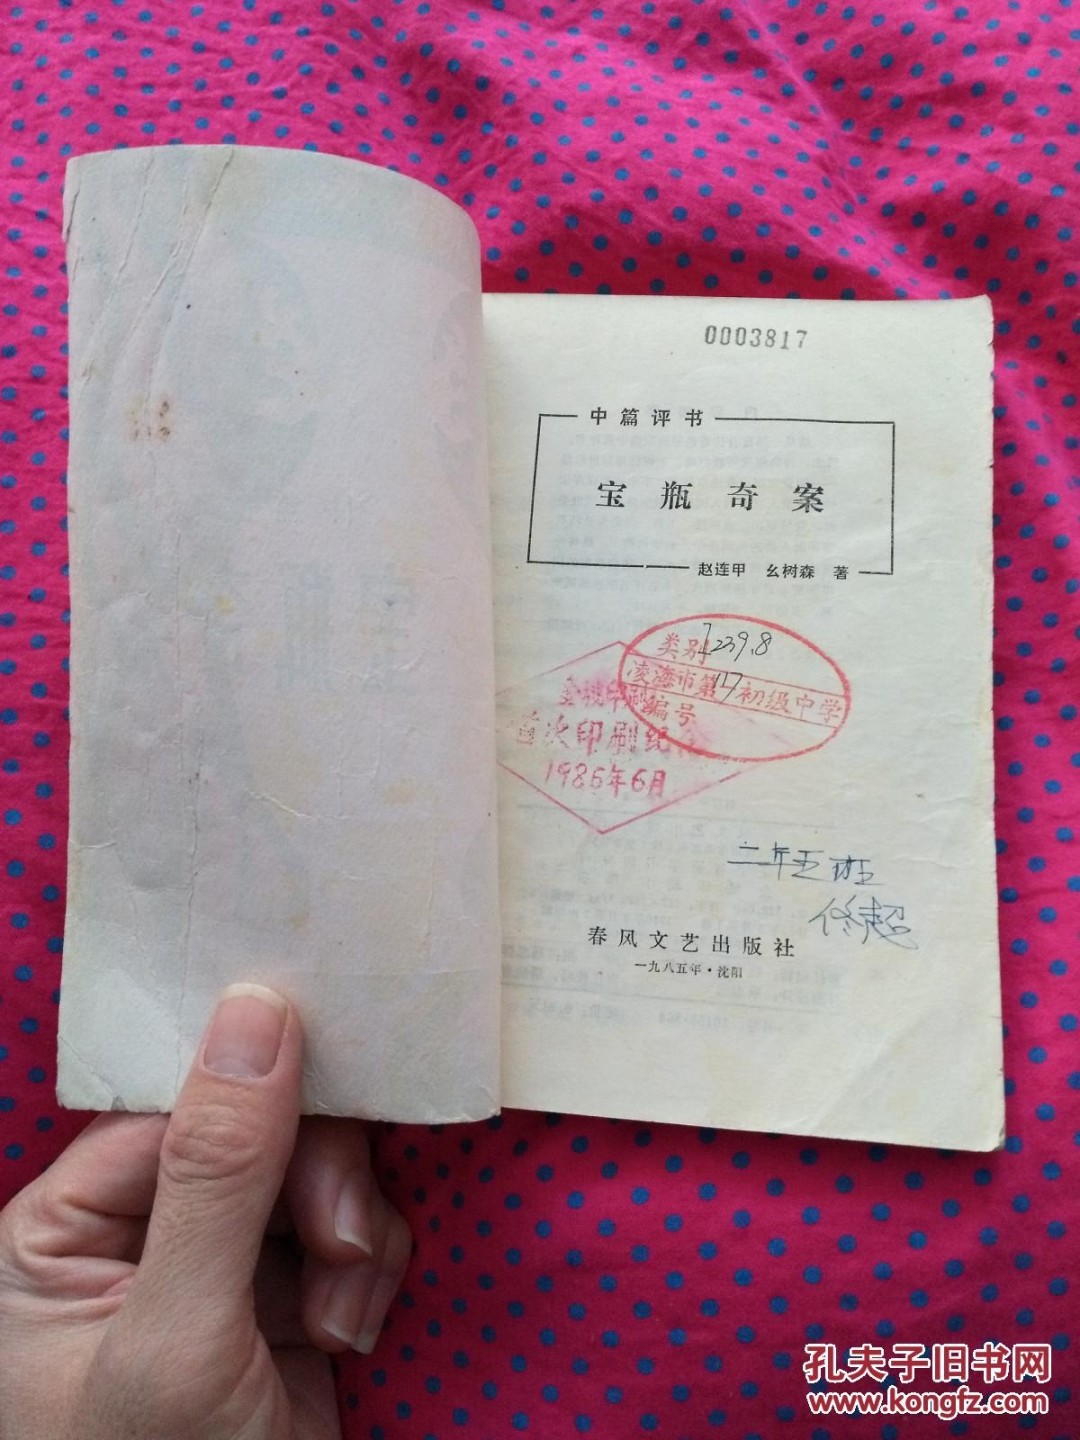 0003817
中篇评书
宝瓶奇案
赵连甲 幺树森 著
类别 I239.8
凌海市第 17 初级中学
编号
印刷
次印刷纪
1986年6月
二年五班
佟超
春风文艺出版社
一九八五年·沈阳
孔夫子旧书网
www.kongfz.com